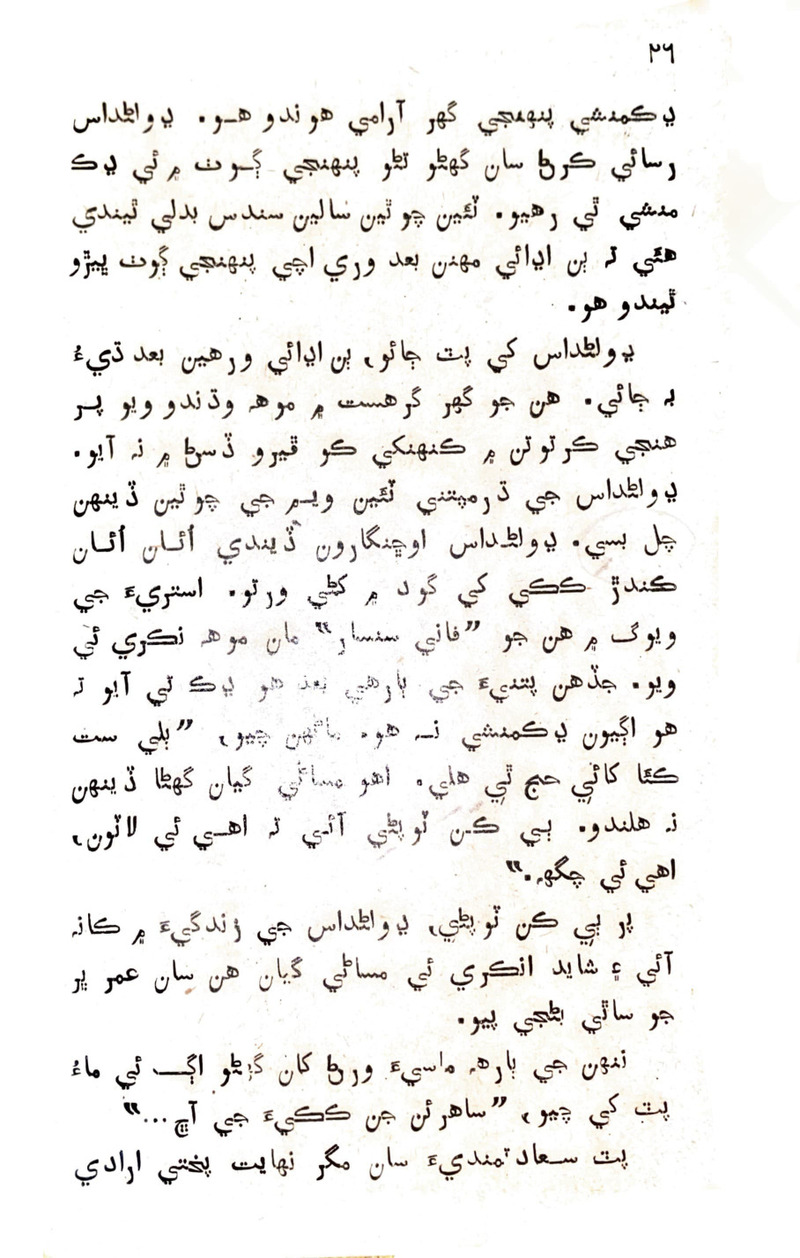 ٣٦
ڍڪمنشي پنهنجي گهر آرامي هوندو هو. ڍولڻداس
رسائي ڪرڻ سان گهڻو تڻو پنهنجي ڳوٺ ۾ ئي ڍڪ
منشي ٿي رهيو. ٽئين چوٿين سالين سندس بدلي ٿيندي
هئي تہ ٻن اڍائي مهنن بعد وري اچي پنهنجي ڳوٺ ڀيڙو
ٿيندو هو.
ڍولڻداس کي پٽ ڄائو، ٻن اڍائي ورهين بعد ڌيءُ
بہ ڄائي. هن جو گهر گرهست ۾ موهہ وڌندو ويو پر
هنجي ڪرتوتن ۾ ڪنهنکي ڪو ڦيرو ڏسڻ ۾ نہ آيو.
ڍولڻداس جي ڌرمپتني ٽئين ويم جي چوٿين ڏينهن
چل بسي. ڍولڻداس اوڇنگارون ڏيندي اُئان اُئان
ڪندڙ ڪڪي کي گود ۾ کڻي ورتو. استريءَ جي
ويوگ ۾ هن جو ”فاني سنسار“ مان موهہ نڪري ئي
ويو. جڏهن پتنيءَ جي ٻارهي بعد هو ڍڪ تي آيو تہ
هو اڳيون ڍڪمنشي نہ هو. ماڻهن چيو، ”ٻلي ست
ڪٿا کائي حج تي هلي. اهو مساڻي گيان گهڻا ڏينهن
نہ هلندو. ٻي ڪن ٽوپڻي آئي تہ اهي ئي لاٽون،
اهي ئي چگهہ.“
پر ٻي ڪن ٽوپڻي، ڍولڻداس جي زندگيءَ ۾ ڪانہ
آئي ۽ شايد انڪري ئي مساڻي گيان هن سان عمر ڀر
جو ساٿي بڻجي پيو.
ننهن جي ٻارهہ ماسيءَ ورڻ کان گهڻو اڳ ئي ماءُ
پٽ کي چيو، ”ساهرئن جن ڪڪيءَ جي آڇ...“
پٽ سعادتمنديءَ سان مگر نهايت پختي ارادي